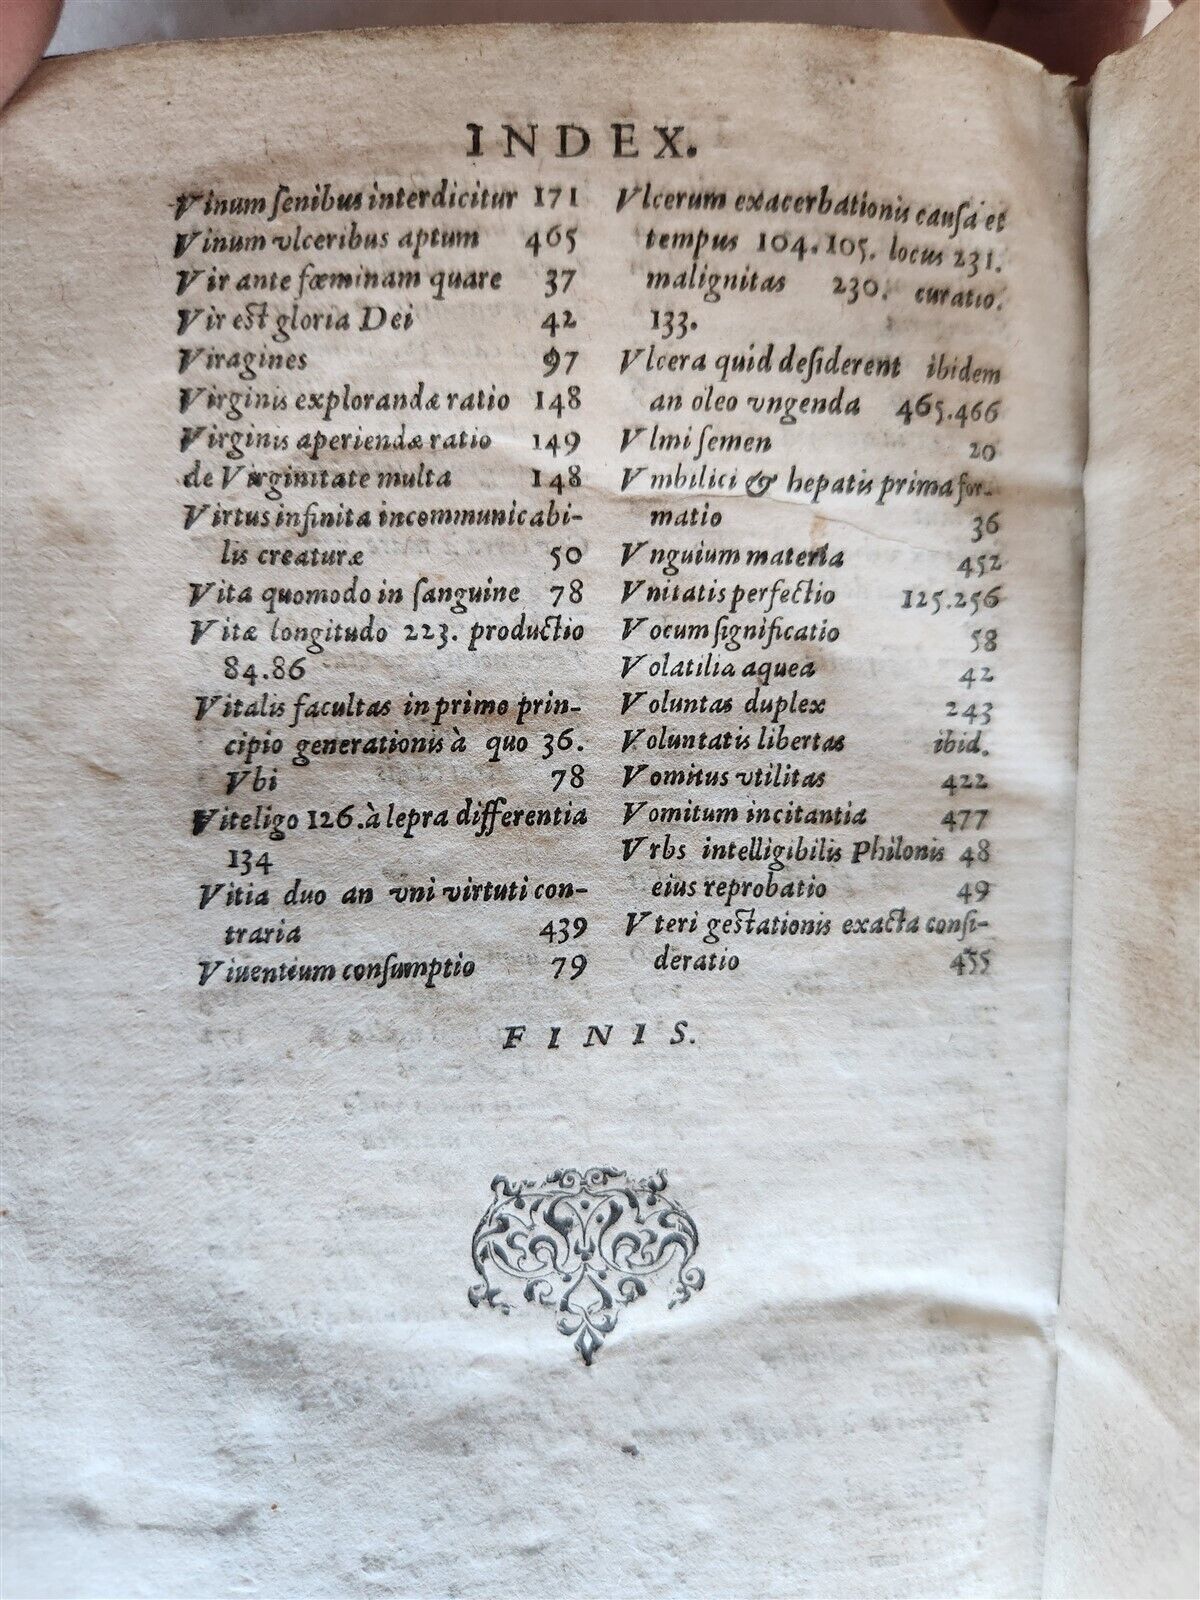 INDEX.
Vinum ſenibus interdicitur 171
Vinum vlceribus aptum 465
Vir ante fœminam quare 37
Vir est gloria Dei 42
Viragines 97
Virginis explorandæ ratio 148
Virginis aperiendæ ratio 149
de Virginitate multa 148
Virtus infinita incommunicabi-
lis creaturæ 50
Vita quomodo in ſanguine 78
Vitæ longitudo 223. productio
84.86
Vitalis facultas in primo prin-
cipio generationis à quo 36.
Vbi 78
Viteligo 126. à lepra differentia
134
Vitia duo an vni virtuti con-
traria 439
Viuentium conſumptio 79
Vlcerum exacerbationis cauſa et
tempus 104.105. locus 231.
malignitas 230. curatio.
133.
Vlcera quid deſiderent ibidem
an oleo vngenda 465.466
Vlmi ſemen 20
Vmbilici & hepatis prima for-
matio 36
Vnguium materia 452
Vnitatis perfectio 125.256
Vocum ſignificatio 58
Volatilia aquea 42
Voluntas duplex 243
Voluntatis libertas ibid.
Vomitus vtilitas 422
Vomitum incitantia 477
Vrbs intelligibilis Philonis 48
eius reprobatio 49
Vteri gestationis exacta conſi-
deratio 455
FINIS.